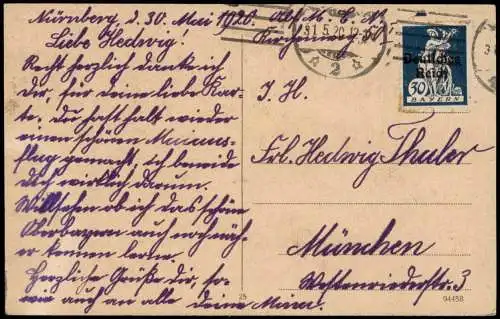 Nürnberg, d. 30. Mai 1920.
Liebe Hedwig!
Recht herzlich danke ich
dir, für deine liebe Kar-
te. Du hast halt wieder
einen schönen Maiaus-
flug gemacht, ich beneide
dich wirklich darum.
Will sehen ob ich das schöne
Oberbayern auch noch näh-
er kennen lerne.
Herzliche Grüße dir, so-
wie auch an alle deine Minna.
31.5.20. 12
2
Deutsches
Reich
30
BAYERN
I. H.
Frl. Hedwig Thuler
München
Westenriederstr. 3
25
94458